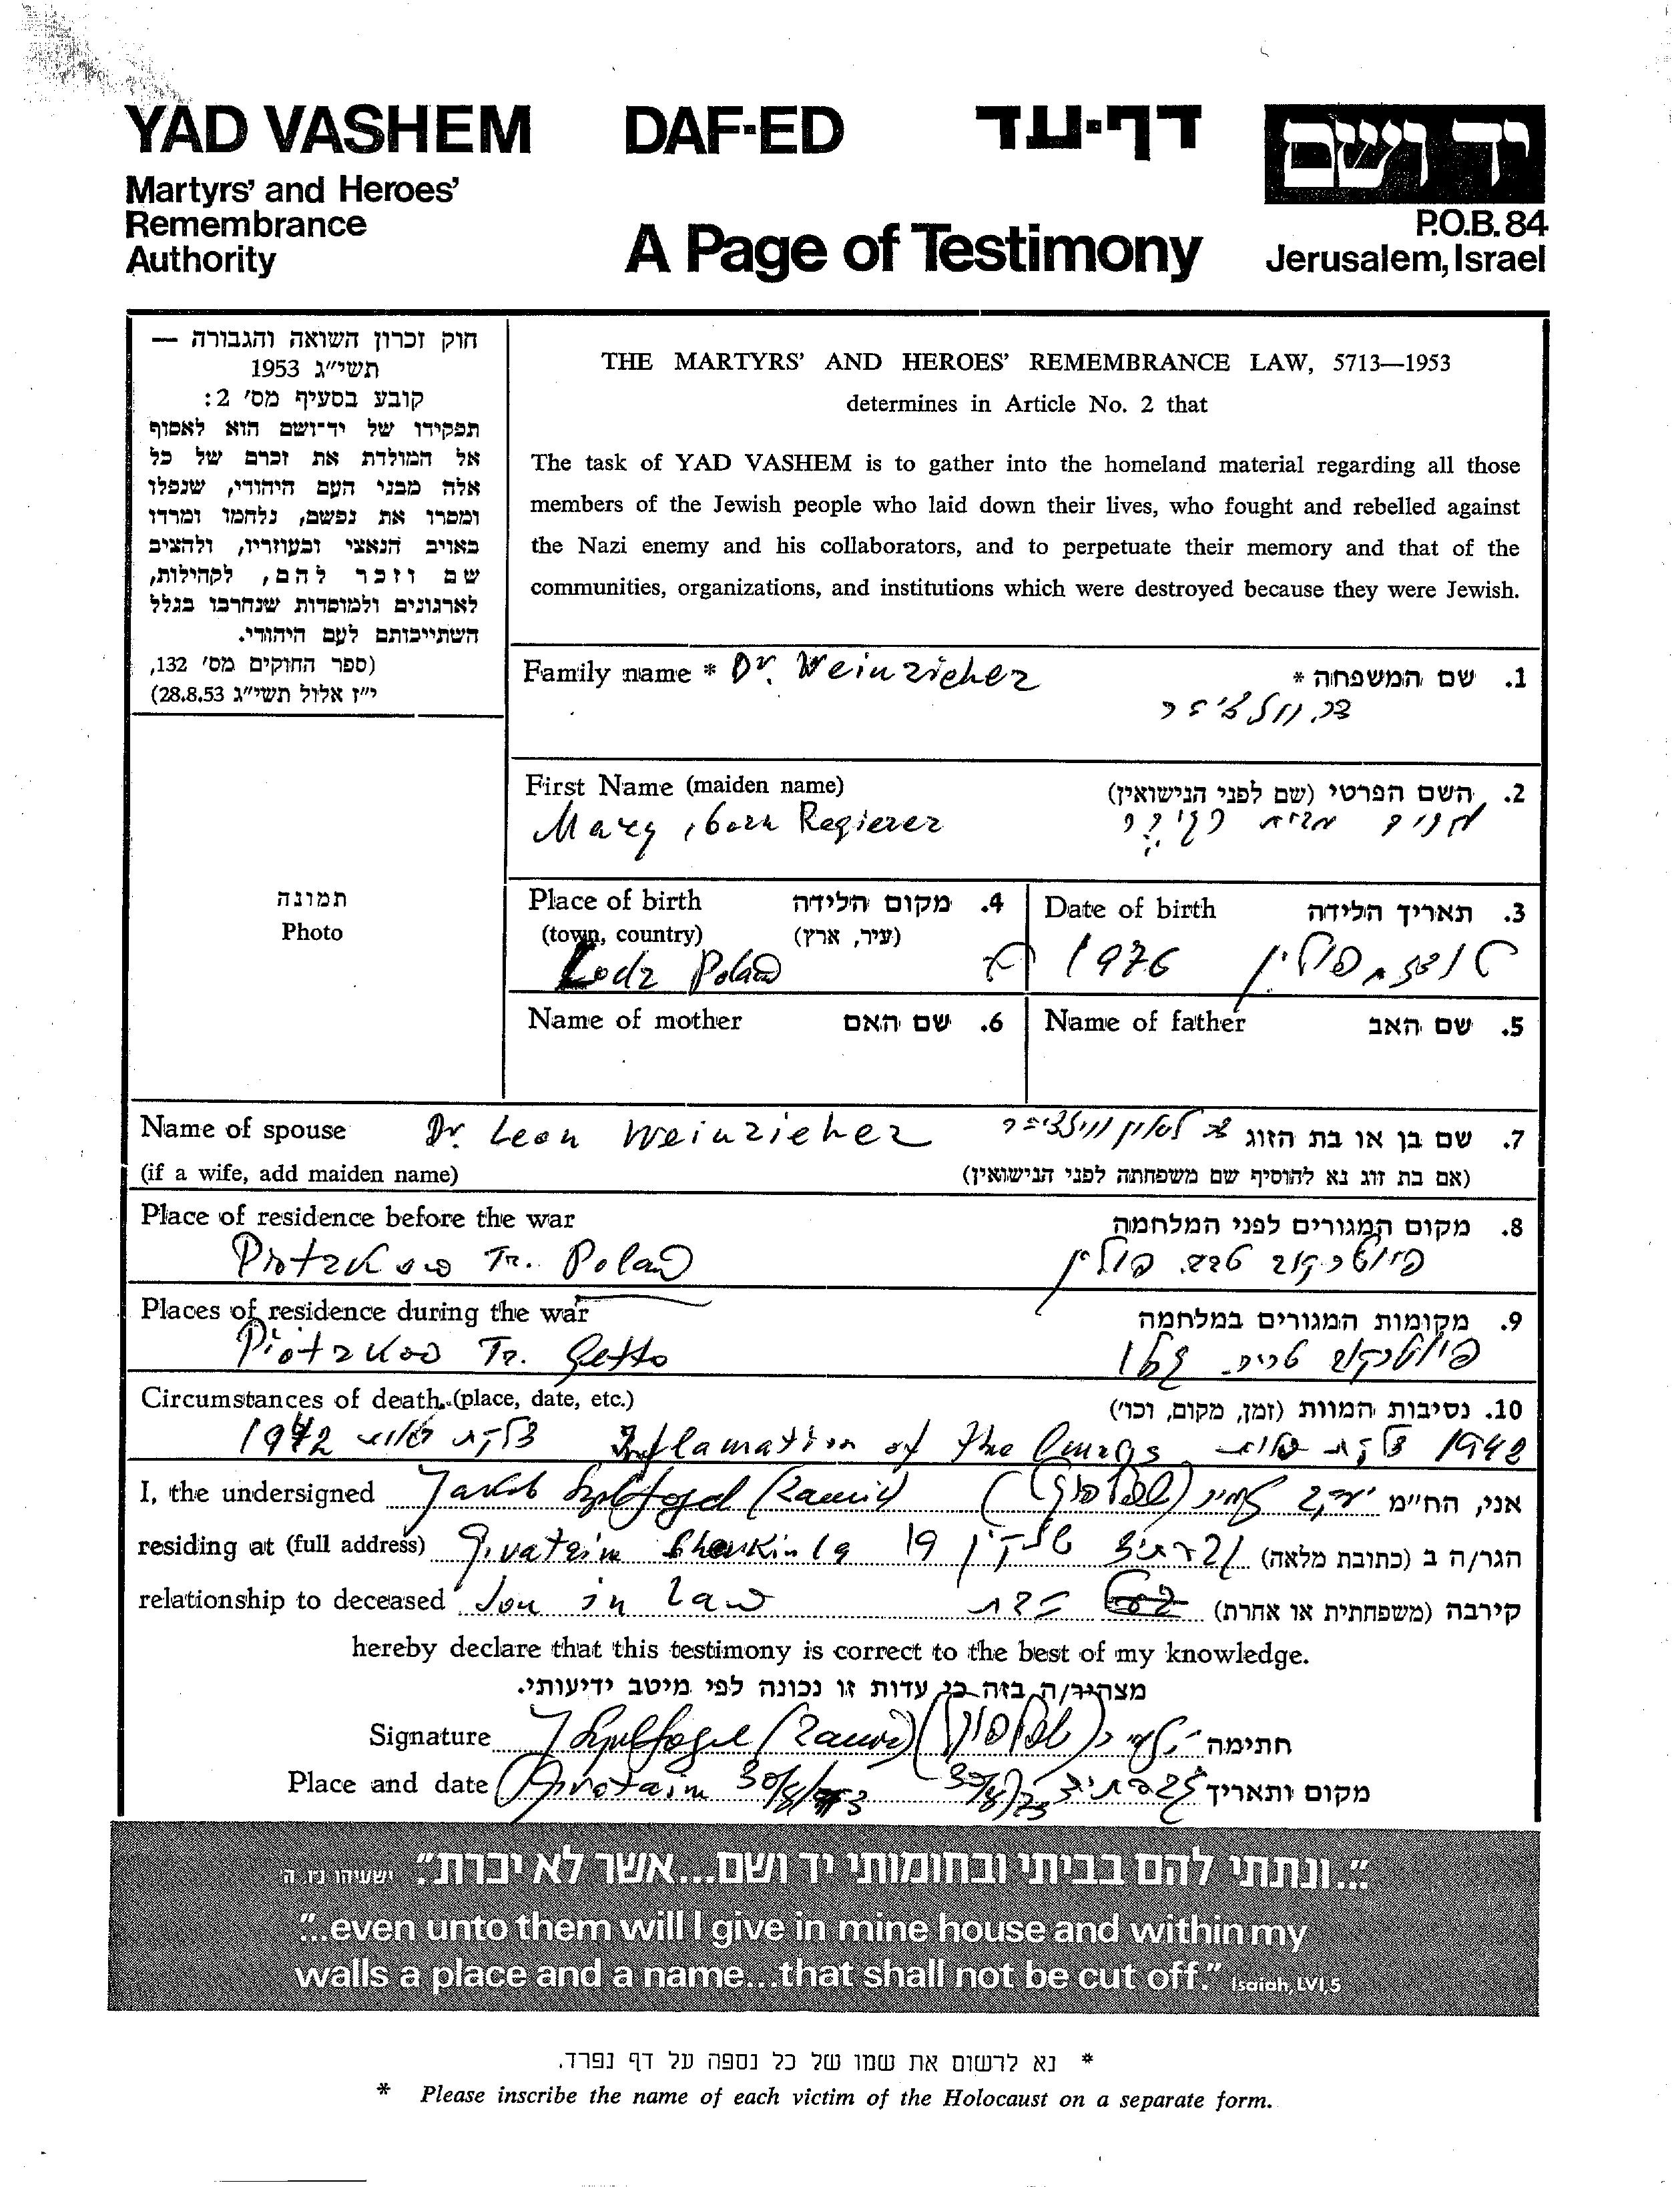 YAD VASHEM DAF-ED דף-עד יד ושם
Martyrs' and Heroes'
Remembrance
Authority
A Page of Testimony
P.O.B. 84
Jerusalem, Israel
חוק זכרון השואה והגבורה —
תשי״ג 1953
קובע בסעיף מס' 2:
תפקידו של יד־ושם הוא לאסוף
אל המולדת את זכרם של כל
אלה מבני העם היהודי, שנפלו
ומסרו את נפשם, נלחמו ומרדו
באויב הנאצי ובעוזריו, ולהציב
שם וזכר להם, לקהילות,
לארגונים ולמוסדות שנחרבו בגלל
השתייכותם לעם היהודי.
(ספר החוקים מס' 132,
י״ז אלול תשי״ג 28.8.53)
THE MARTYRS' AND HEROES' REMEMBRANCE LAW, 5713—1953
determines in Article No. 2 that
The task of YAD VASHEM is to gather into the homeland material regarding all those
members of the Jewish people who laid down their lives, who fought and rebelled against
the Nazi enemy and his collaborators, and to perpetuate their memory and that of the
communities, organizations, and institutions which were destroyed because they were Jewish.
Family name * Dr. Weinzieher 1. שם המשפחה *
First Name (maiden name) 2. השם הפרטי (שם לפני הנישואין)
Mary, born Regierer
תמונה
Photo
Place of birth 4. מקום הלידה
(town, country) (עיר, ארץ)
Lodz Poland
Date of birth 3. תאריך הלידה
1976 לודז פולין
Name of mother 6. שם האם
Name of father 5. שם האב
Name of spouse Dr. Leon Weinzieher 7. שם בן או בת הזוג
(if a wife, add maiden name) (אם בת זוג נא להוסיף שם משפחתה לפני הנישואין)
Place of residence before the war 8. מקום המגורים לפני המלחמה
Piotrkow Tr. Poland פיוטרקוב טרב. פולין
Places of residence during the war 9. מקומות המגורים במלחמה
Piotrkow Tr. Getto פיוטרקוב טריב. גטו
Circumstances of death (place, date, etc.) 10. נסיבות המוות (זמן, מקום, וכו')
1942 דלקת ריאות Inflamation of the lungs דלקת ריאות 1942
I, the undersigned Jakob Szpilfogel (Zamir) אני, הח״מ יעקב זמיר (שפילפוגל)
residing at (full address) Givataim Shenkin 19 הגר/ה ב (כתובת מלאה) גבעתיים שנקין 19
relationship to deceased Son in law קירבה (משפחתית או אחרת)
hereby declare that this testimony is correct to the best of my knowledge.
מצהיר/ה בזה כי עדות זו נכונה לפי מיטב ידיעותי.
Signature J Szpilfogel (Zamir) חתימה
Place and date Givataim 30/8/73 מקום ותאריך גבעתיים 30/8/73
"...ונתתי להם בביתי ובחומותי יד ושם...אשר לא יכרת." ישעיהו נו, ה'
"...even unto them will I give in mine house and within my
walls a place and a name...that shall not be cut off." Isaiah, LVI,5
* נא לרשום את שמו של כל נספה על דף נפרד.
* Please inscribe the name of each victim of the Holocaust on a separate form.